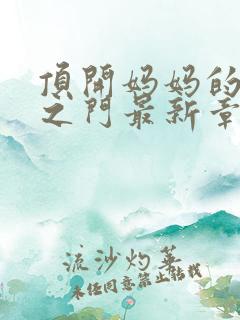 頂開妈妈的
之门最新章
流沙灼华
未经同意禁止转载